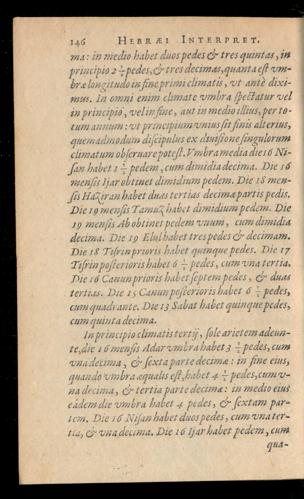 146 HEBRÆI INTERPRET.
ma: in medio habet duos pedes & tres quintas, in
principio 2 ½ pedes, & tres decimas, quanta est vm-
bræ longitudo in fine primi climatis, vt antè dixi-
mus. In omni enim climate vmbra spectatur vel
in principio, vel in fine, aut in medio illius, per to-
tum annum: vt principium vnius sit finis alterius,
quemadmodum discipulus ex diuisione singulorum
climatum obseruare potest. Vmbra media die 16 Ni-
san habet 1 ½ pedem, cum dimidia decima. Die 16
mensis Ijar obtinet dimidium pedem. Die 18 men-
sis Haziran habet duas tertias decimæ partis pedis.
Die 19 mensis Tamuz habet dimidium pedem. Die
19 mensis Ab obtinet pedem vnum, cum dimidia
decima. Die 19 Elul habet tres pedes & decimam.
Die 18 Tisrin prioris habet quinque pedes. Die 17
Tisrin posterioris habet 6 ½ pedes, cum vna tertia.
Die 16 Canun prioris habet septem pedes, & duas
tertias. Die 15 Canun posterioris habet 6 ½ pedes,
cum quadrante. Die 13 Sabat habet quinque pedes,
cum quinta decima.
In principio climatis tertij, sole arietem adeun-
te, die 16 mensis Adar vmbra habet 3 ½ pedes, cum
vna decima, & sexta parte decimæ: in fine eius,
quando vmbra æqualis est, habet 4 ½ pedes, cum v-
na decima, & tertia parte decimæ: in medio eius
eâdem die vmbra habet 4 pedes, & sextam par-
tem. Die 16 Nisan habet duos pedes, cum vna ter-
tia, & vna decima. Die 16 Ijar habet pedem, cum
qua-